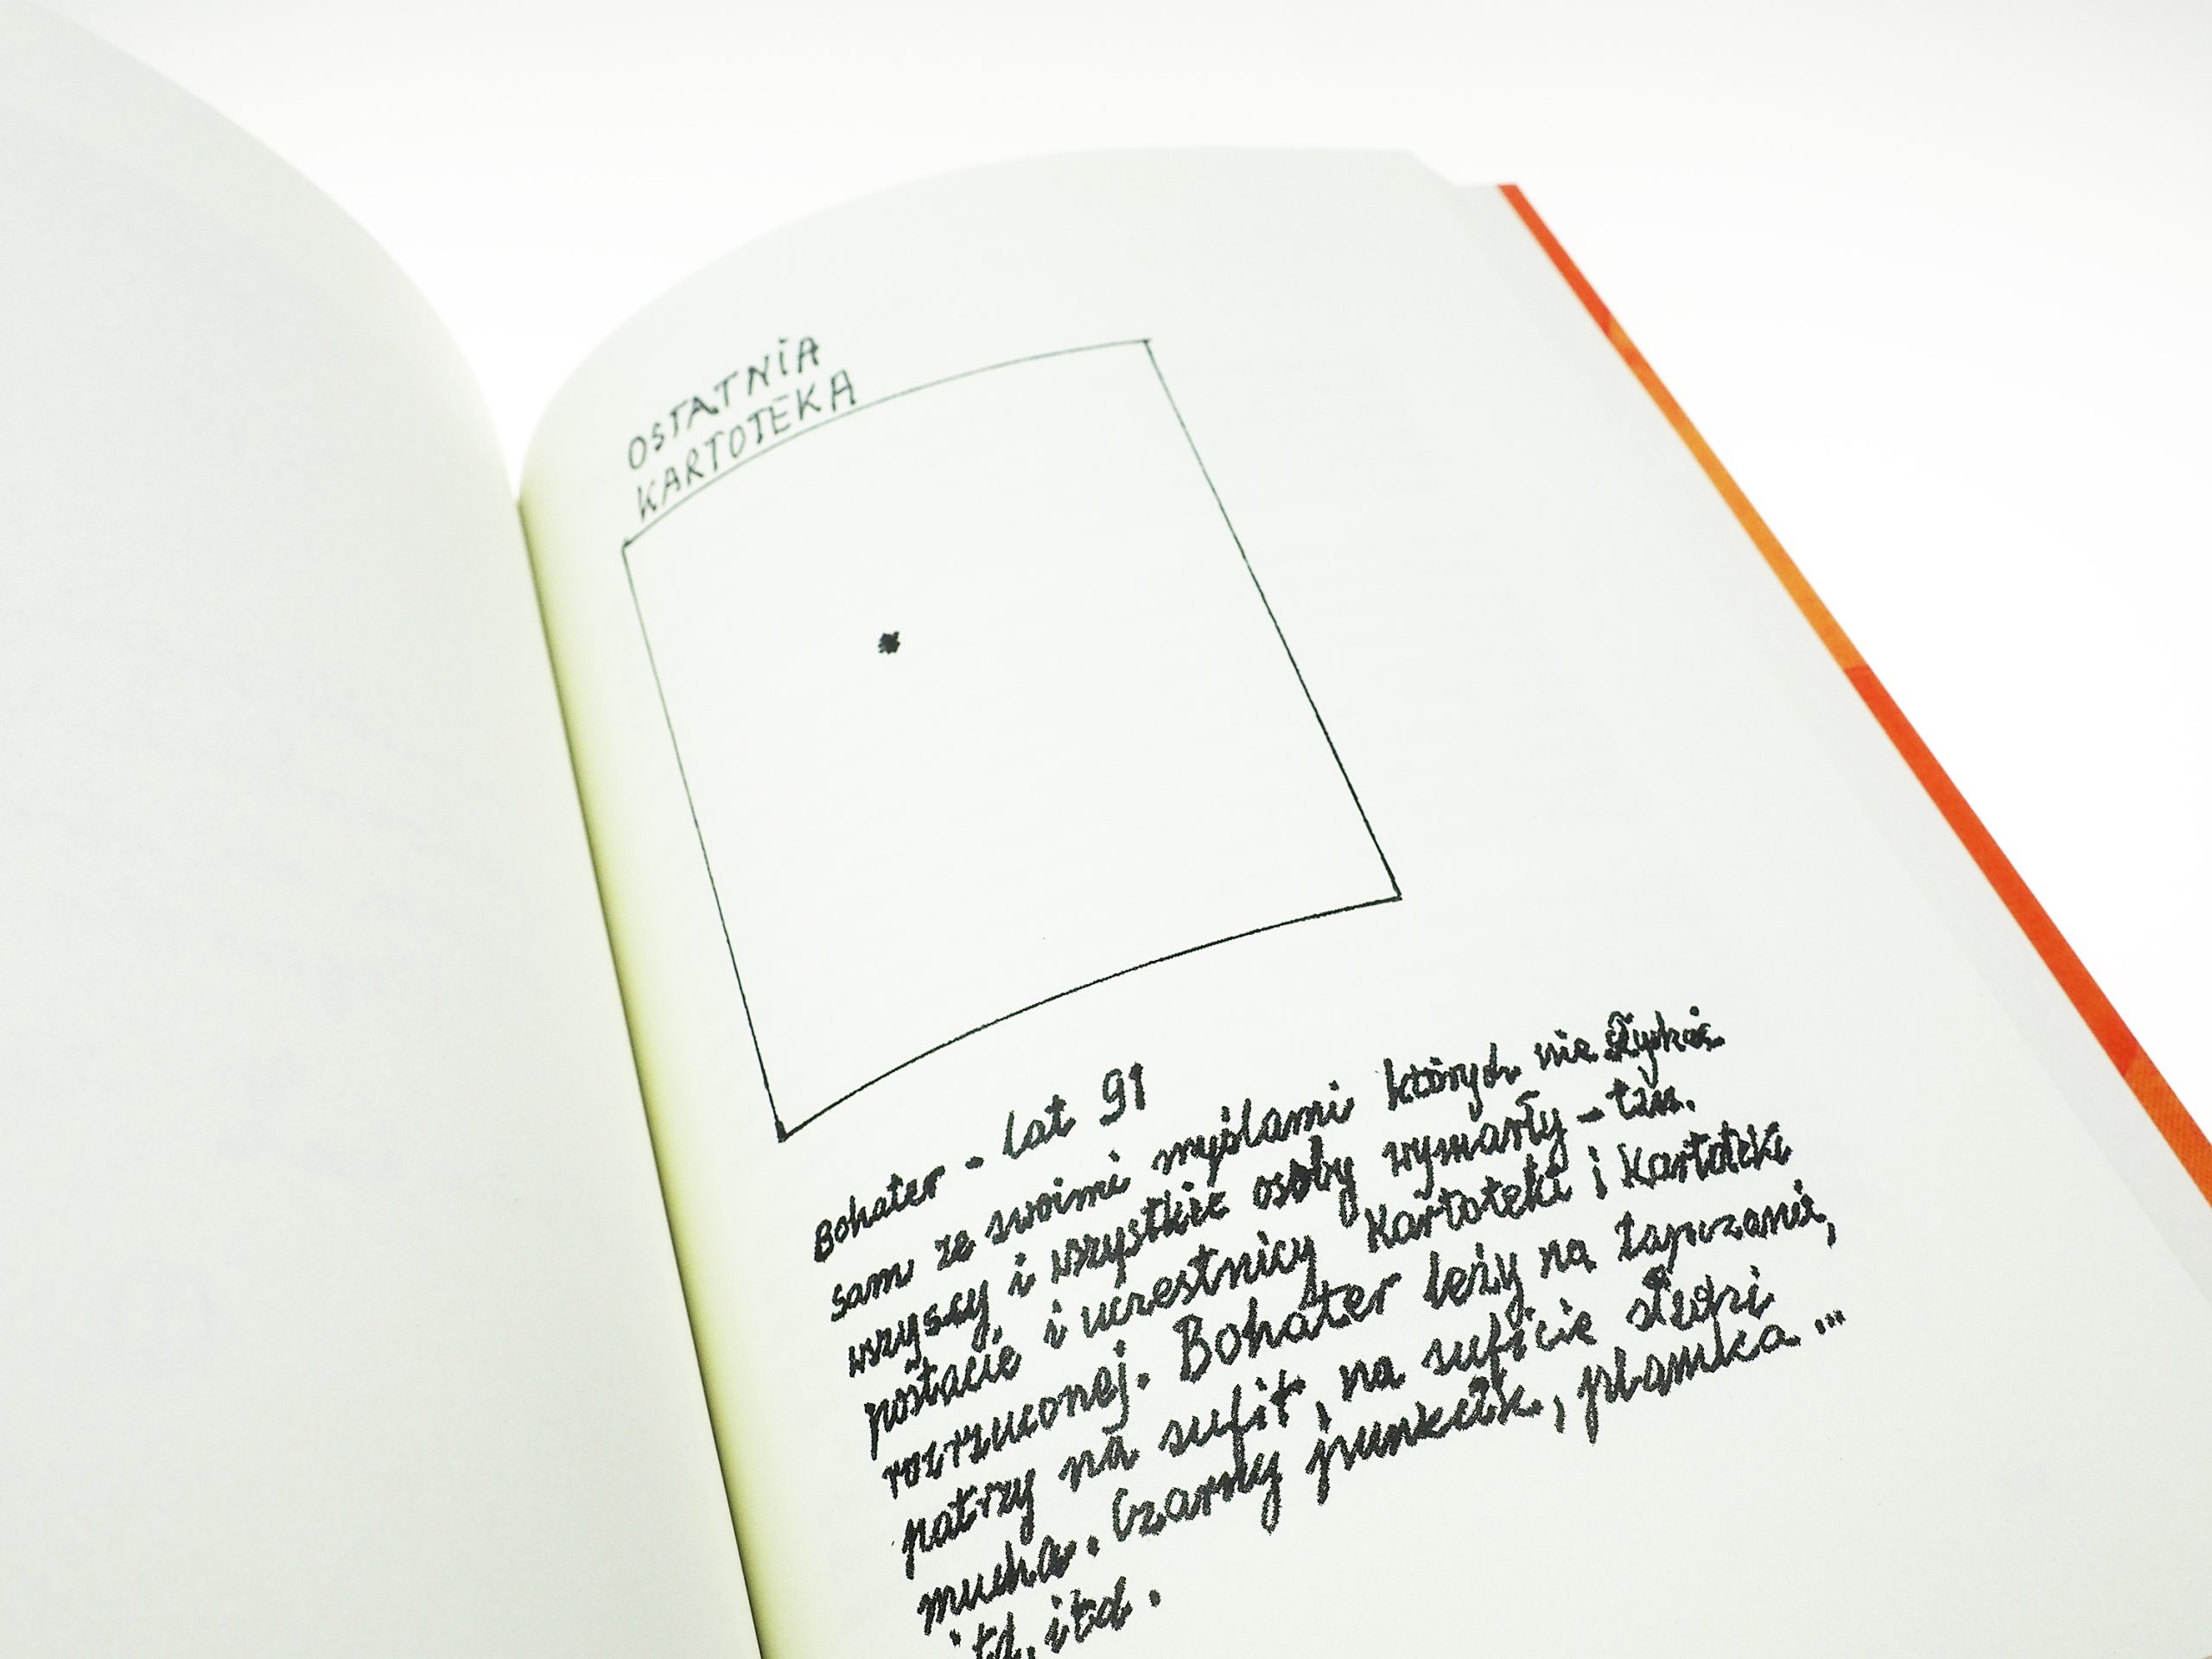 OSTATNIA
KARTOTEKA
Bohater - lat 91
sam ze swoimi myślami których nie słychać
wszyscy i wszystkie osoby wymarły - tzn.
postacie i uczestnicy Kartoteki i Kartoteki
rozrzuconej. Bohater leży na tapczanie,
patrzy na sufit, na suficie siedzi
mucha. Czarny punkcik, plamka...
itd. itd.